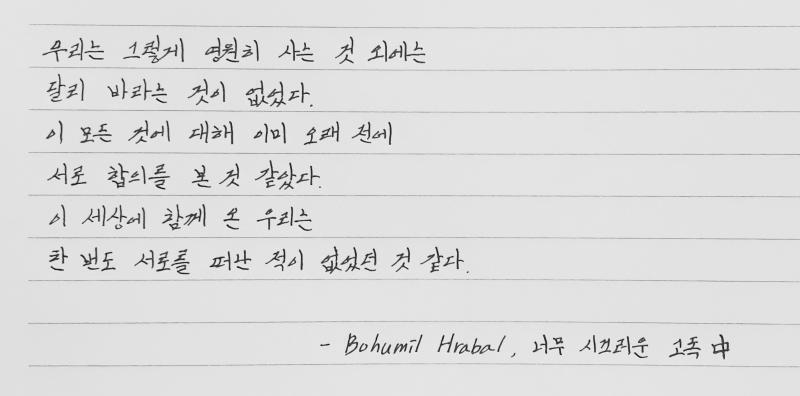 우리는 그렇게 영원히 사는 것 외에는
달리 바라는 것이 없었다.
이 모든 것에 대해 이미 오래 전에
서로 합의를 본 것 같았다.
이 세상에 함께 온 우리는
한 번도 서로를 떠난 적이 없었던 것 같다.
- Bohumil Hrabal, 너무 시끄러운 고독 中